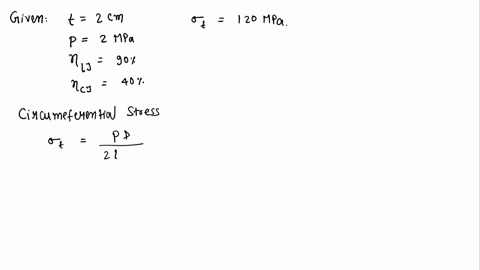 Given: t = 2 cm σt = 120 MPa.
P = 2 MPa
ηLJ = 90%
ηCJ = 40%
Circumeferential Stress
σt = PD
2t